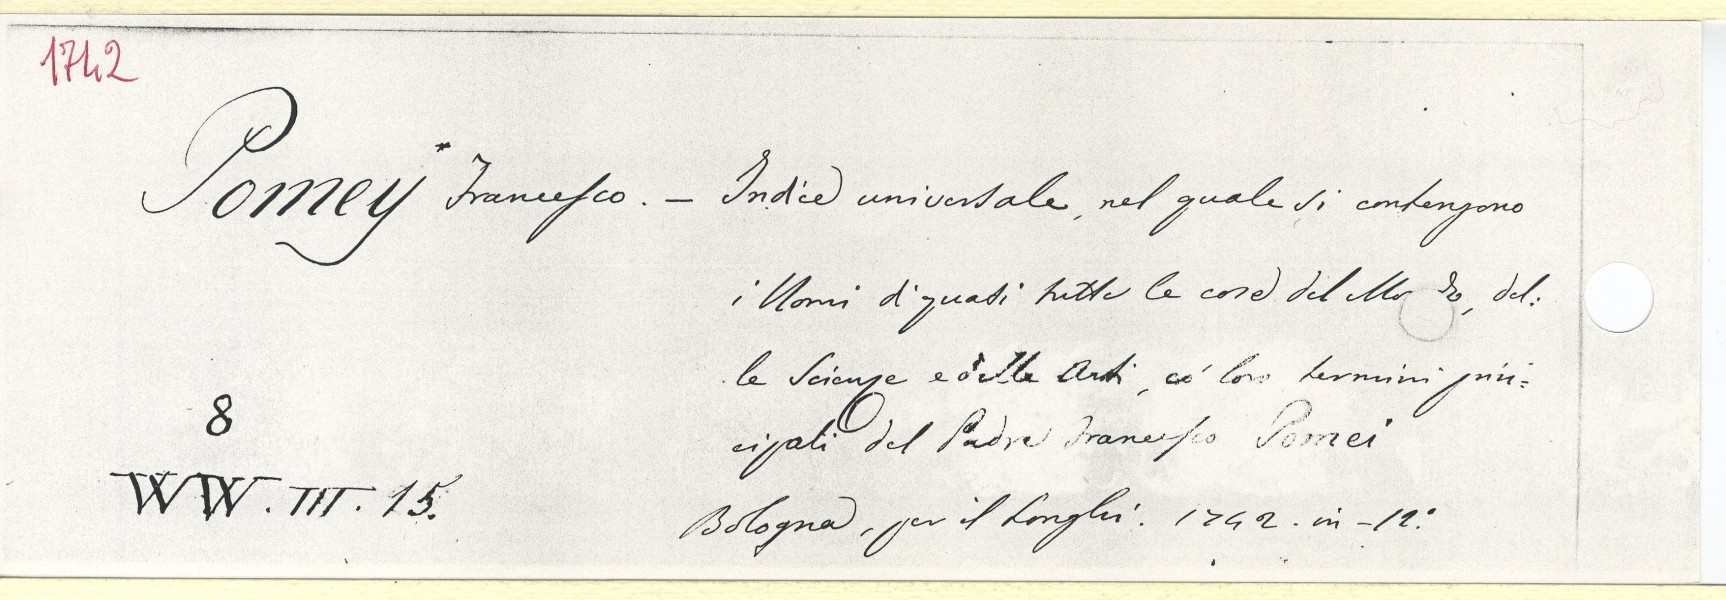 1742
Pomey* Francesco. — Indice universale, nel quale si contengono
i Nomi di quasi tutte le cose del Mondo, del:
le Scienze e delle Arti, co' loro termini prin:
cipali del Padre Francesco Pomei
8
WW. III. 15.
Bologna, per il Longhi. 1742. in-12.°